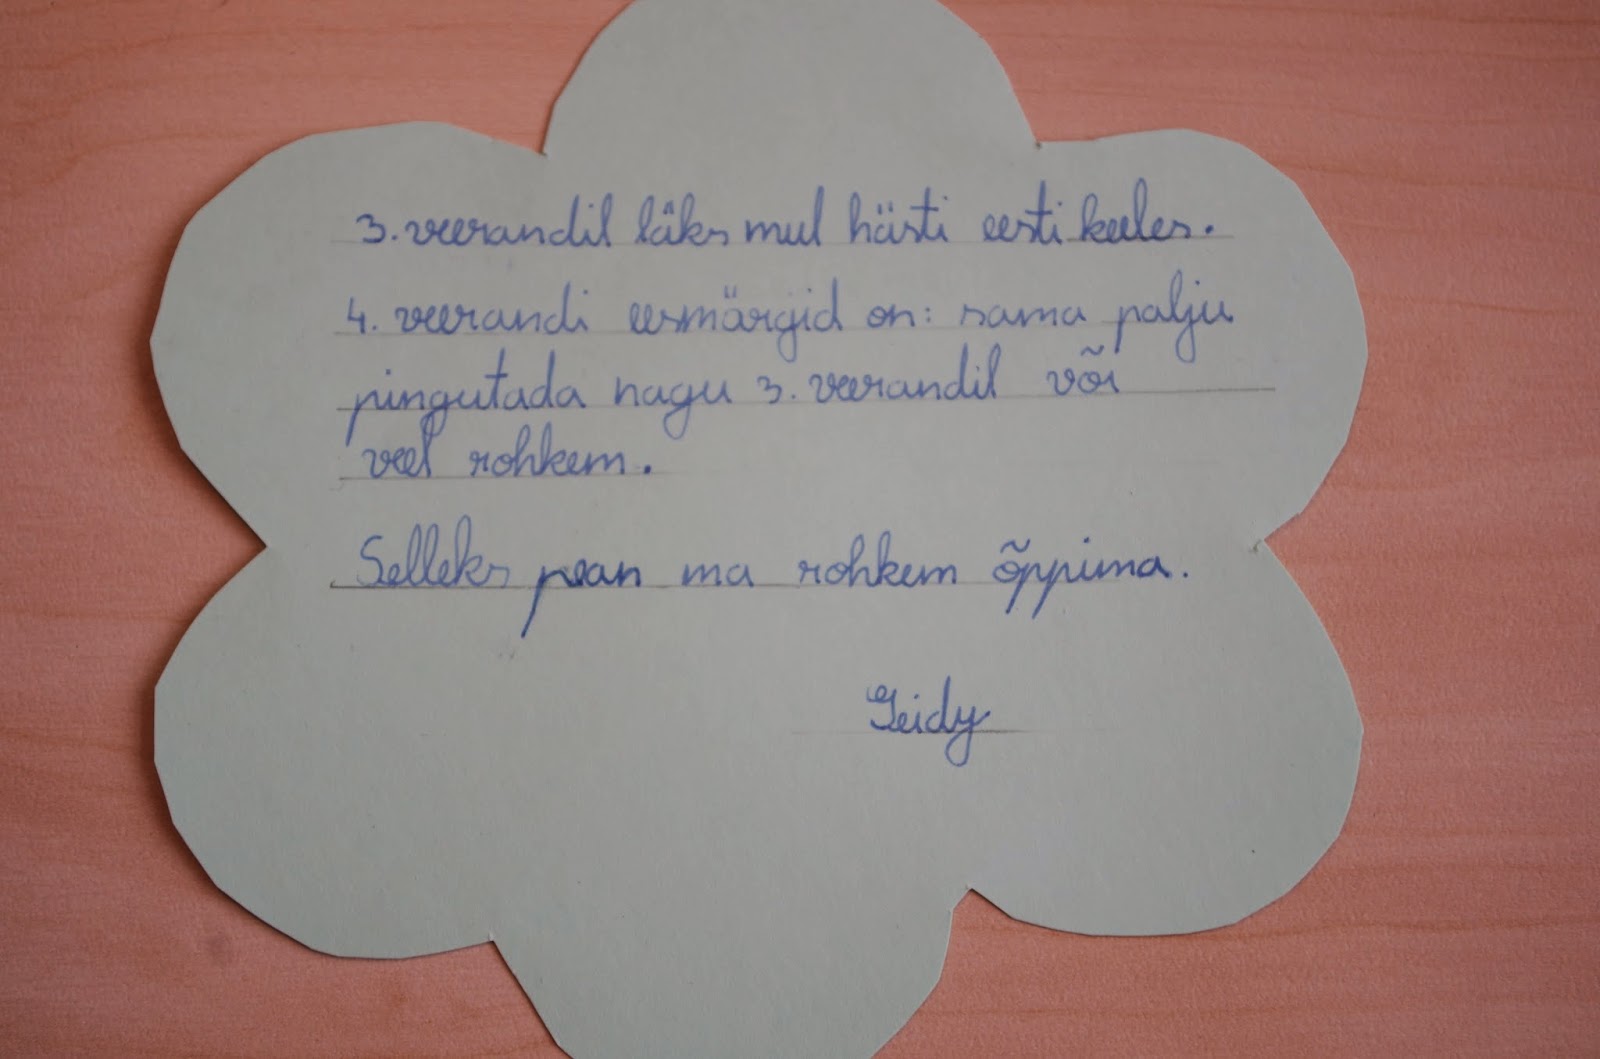 3. veerandil läks mul hästi eesti keeles.
4. veerandi eesmärgid on: sama palju
pingutada nagu 3. veerandil või
veel rohkem.
Selleks pean ma rohkem õppima.
Geidy